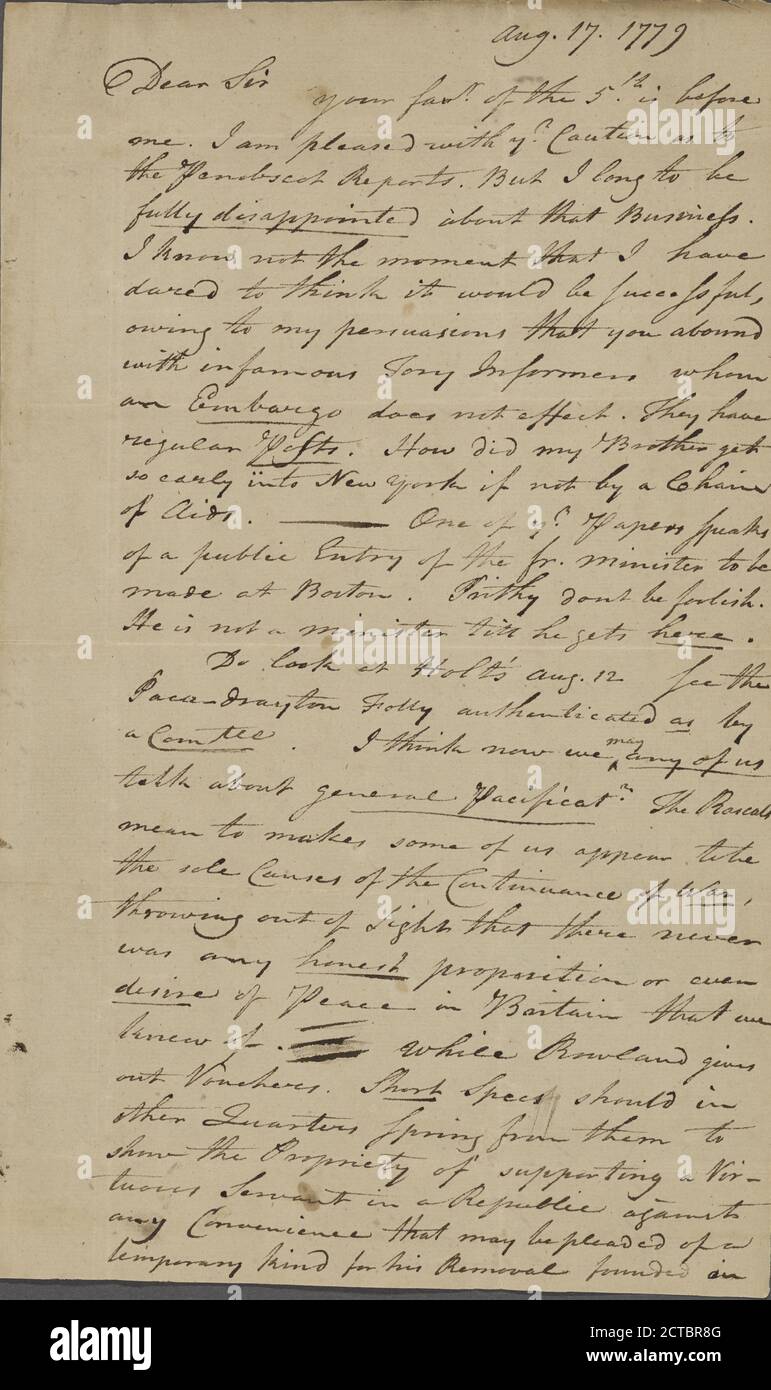 Aug. 17. 1779
Dear Sir
your favr. of the 5.th is before
me. I am pleased with yr. Caution as to
the Penobscot Reports. But I long to be
fully disappointed about that Business.
I know not the moment that I have
dared to think it would be successful,
owing to my persuasions that you abound
with infamous Tory Informers whom
an Embargo does not effect. They have
regular Posts. How did my Brother get
so early into New York if not by a Chain
of Aids. — One of yr. Papers speaks
of a public Entry of the fr. minister to be
made at Boston. Prithy dont be foolish.
He is not a minister till he gets here.
Do look at Holt's Aug. 12 See the
Paca-Drayton Folly authenticated as by
a Comtee. I think now we may any of us
talk about general Pacificatn. The Rascals
mean to makes some of us appear to be
the sole Causes of the Continuance of War,
throwing out of Sight that there never
was any honest proposition or even
desire of Peace in Britain that we
knew of. While Rowland gives
out Vouchers. Short Specs should in
other Quarters spring from them to
show the Propriety of supporting a Vir-
tuous Servant in a Republic against
any Convenience that may be pleaded of a
temporary kind for his Removal founded in
alamy
Image ID: 2CTBR8G
www.alamy.com